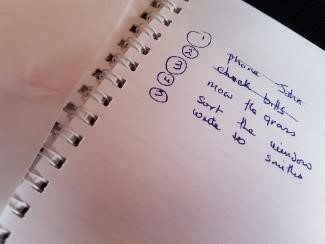 1 phone John
2 check bills
3 mow the grass
4 sort the window
5 write to smiths